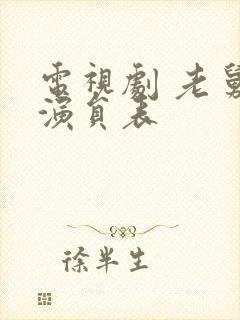 電視劇 老舅
演員表
徐半生